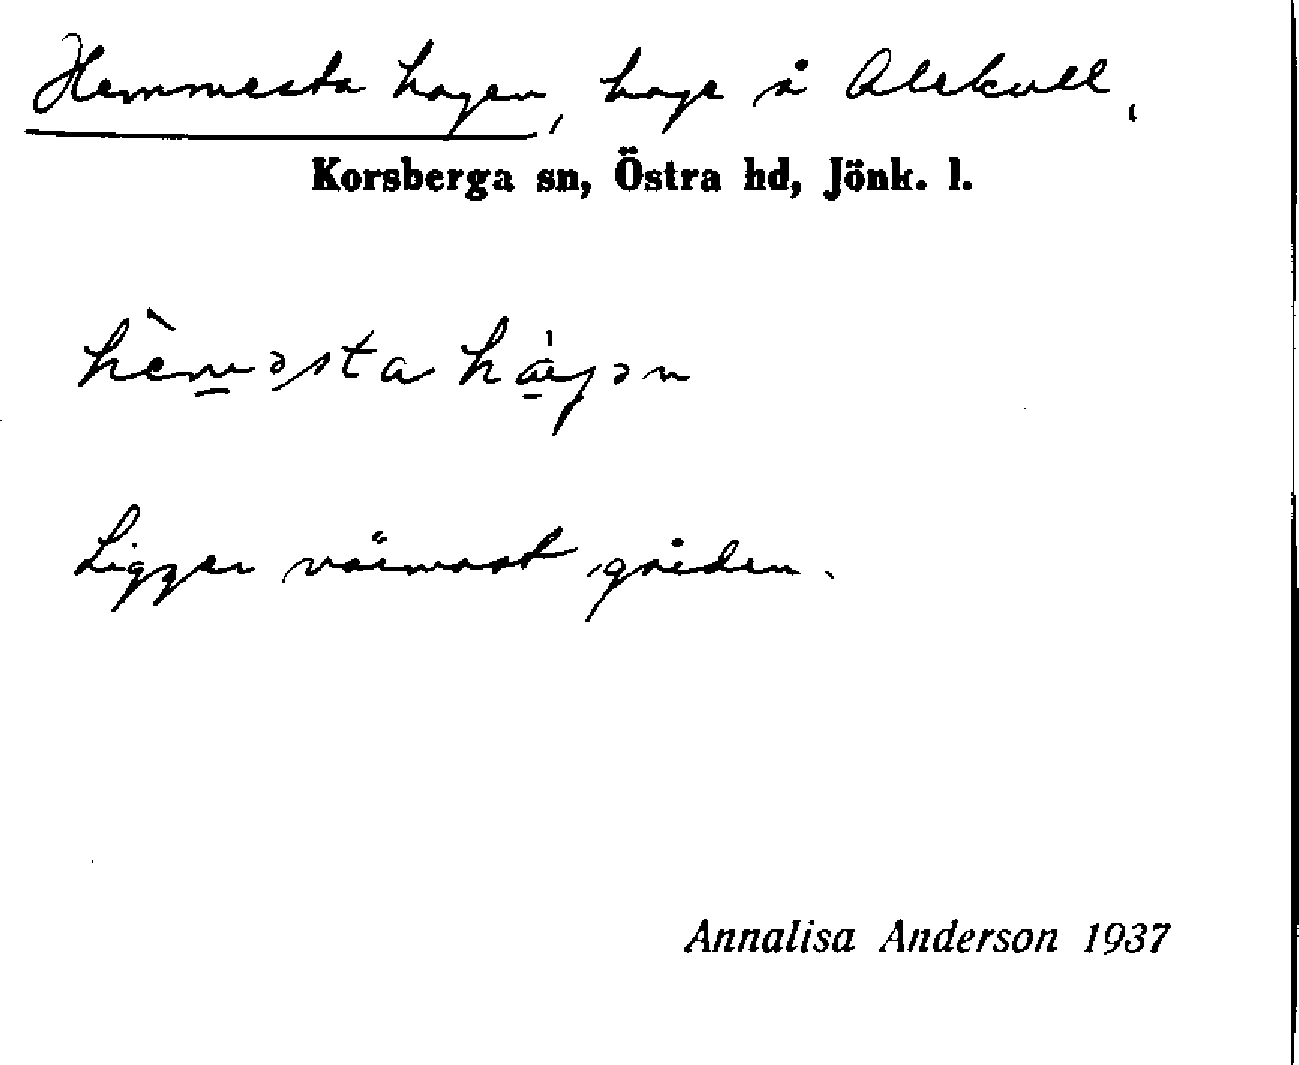 Hemmesta hagen, hage å Alekull,
Korsberga sn, Östra hd, Jönk. l.
hèm̲əsta há̲gən
Ligger närmast gården.
Annalisa Anderson 1937